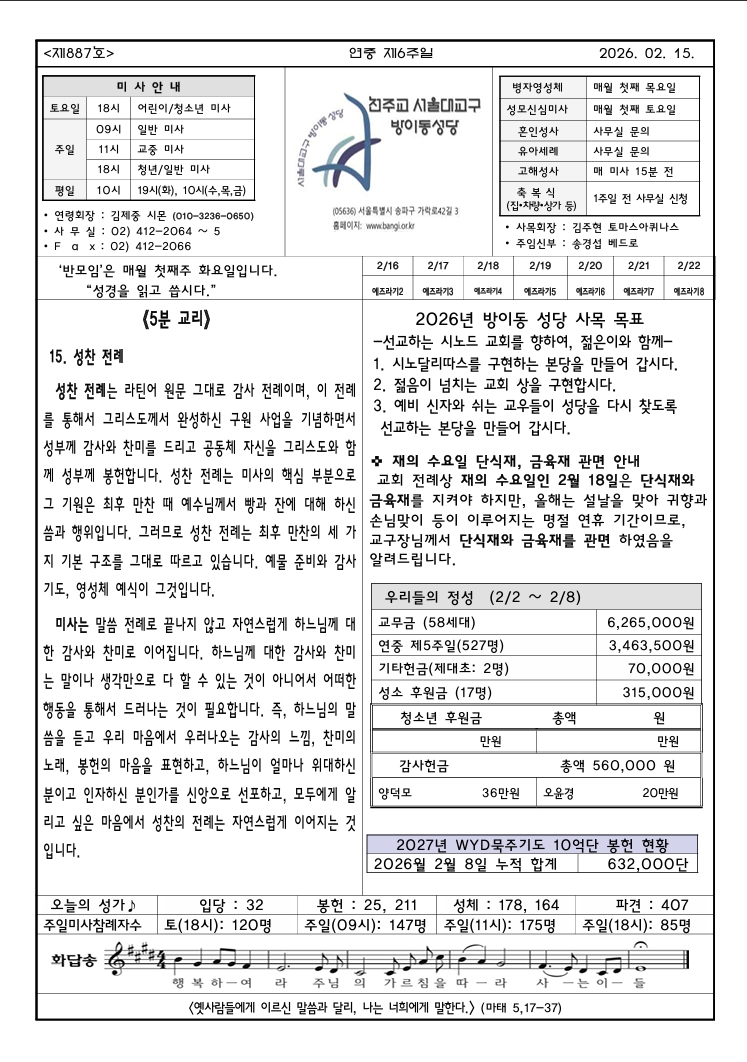 <제887호> 연중 제6주일 2026. 02. 15.
미 사 안 내
토요일 18시 어린이/청소년 미사
주일 09시 일반 미사
11시 교중 미사
18시 청년/일반 미사
평일 10시 19시(화), 10시(수,목,금)
• 연령회장 : 김제중 시몬 (010-3236-0650)
• 사 무 실 : 02) 412-2064 ~ 5
• F a x : 02) 412-2066
서울대교구 방이동 성당
천주교 서울대교구
방이동성당
(05636) 서울특별시 송파구 가락로42길 3
홈페이지: www.bangi.or.kr
병자영성체 매월 첫째 목요일
성모신심미사 매월 첫째 토요일
혼인성사 사무실 문의
유아세례 사무실 문의
고해성사 매 미사 15분 전
축 복 식 1주일 전 사무실 신청
(집•차량•상가 등)
• 사목회장 : 김주현 토마스아퀴나스
• 주임신부 : 송경섭 베드로
‘반모임’은 매월 첫째주 화요일입니다.
“성경을 읽고 씁시다.”
2/16 2/17 2/18 2/19 2/20 2/21 2/22
에즈라기2 에즈라기3 에즈라기4 에즈라기5 에즈라기6 에즈라기7 에즈라기8
《5분 교리》
15. 성찬 전례
성찬 전례는 라틴어 원문 그대로 감사 전례이며, 이 전례
를 통해서 그리스도께서 완성하신 구원 사업을 기념하면서
성부께 감사와 찬미를 드리고 공동체 자신을 그리스도와 함
께 성부께 봉헌합니다. 성찬 전례는 미사의 핵심 부분으로
그 기원은 최후 만찬 때 예수님께서 빵과 잔에 대해 하신
씀과 행위입니다. 그러므로 성찬 전례는 최후 만찬의 세 가
지 기본 구조를 그대로 따르고 있습니다. 예물 준비와 감사
기도, 영성체 예식이 그것입니다.
미사는 말씀 전례로 끝나지 않고 자연스럽게 하느님께 대
한 감사와 찬미로 이어집니다. 하느님께 대한 감사와 찬미
는 말이나 생각만으로 다 할 수 있는 것이 아니어서 어떠한
행동을 통해서 드러나는 것이 필요합니다. 즉, 하느님의 말
씀을 듣고 우리 마음에서 우러나오는 감사의 느낌, 찬미의
노래, 봉헌의 마음을 표현하고, 하느님이 얼마나 위대하신
분이고 인자하신 분인가를 신앙으로 선포하고, 모두에게 알
리고 싶은 마음에서 성찬의 전례는 자연스럽게 이어지는 것
입니다.
2026년 방이동 성당 사목 목표
-선교하는 시노드 교회를 향하여, 젊은이와 함께-
1. 시노달리따스를 구현하는 본당을 만들어 갑시다.
2. 젊음이 넘치는 교회 상을 구현합시다.
3. 예비 신자와 쉬는 교우들이 성당을 다시 찾도록
선교하는 본당을 만들어 갑시다.
❖ 재의 수요일 단식재, 금육재 관면 안내
교회 전례상 재의 수요일인 2월 18일은 단식재와
금육재를 지켜야 하지만, 올해는 설날을 맞아 귀향과
손님맞이 등이 이루어지는 명절 연휴 기간이므로,
교구장님께서 단식재와 금육재를 관면 하였음을
알려드립니다.
우리들의 정성 (2/2 ~ 2/8)
교무금 (58세대) 6,265,000원
연중 제5주일(527명) 3,463,500원
기타헌금(제대초: 2명) 70,000원
성소 후원금 (17명) 315,000원
청소년 후원금 총액 원
만원 만원
감사헌금 총액 560,000 원
양덕모 36만원 오윤경 20만원
2027년 WYD묵주기도 10억단 봉헌 현황
2026월 2월 8일 누적 합계 632,000단
오늘의 성가♪ 입당 : 32 봉헌 : 25, 211 성체 : 178, 164 파견 : 407
주일미사참례자수 토(18시): 120명 주일(09시): 147명 주일(11시): 175명 주일(18시): 85명
화답송
행 복 하ー여 라 주님 의 가르침을 따ー라 사 ー는이ー 들
〈옛사람들에게 이르신 말씀과 달리, 나는 너희에게 말한다.〉 (마태 5,17-37)